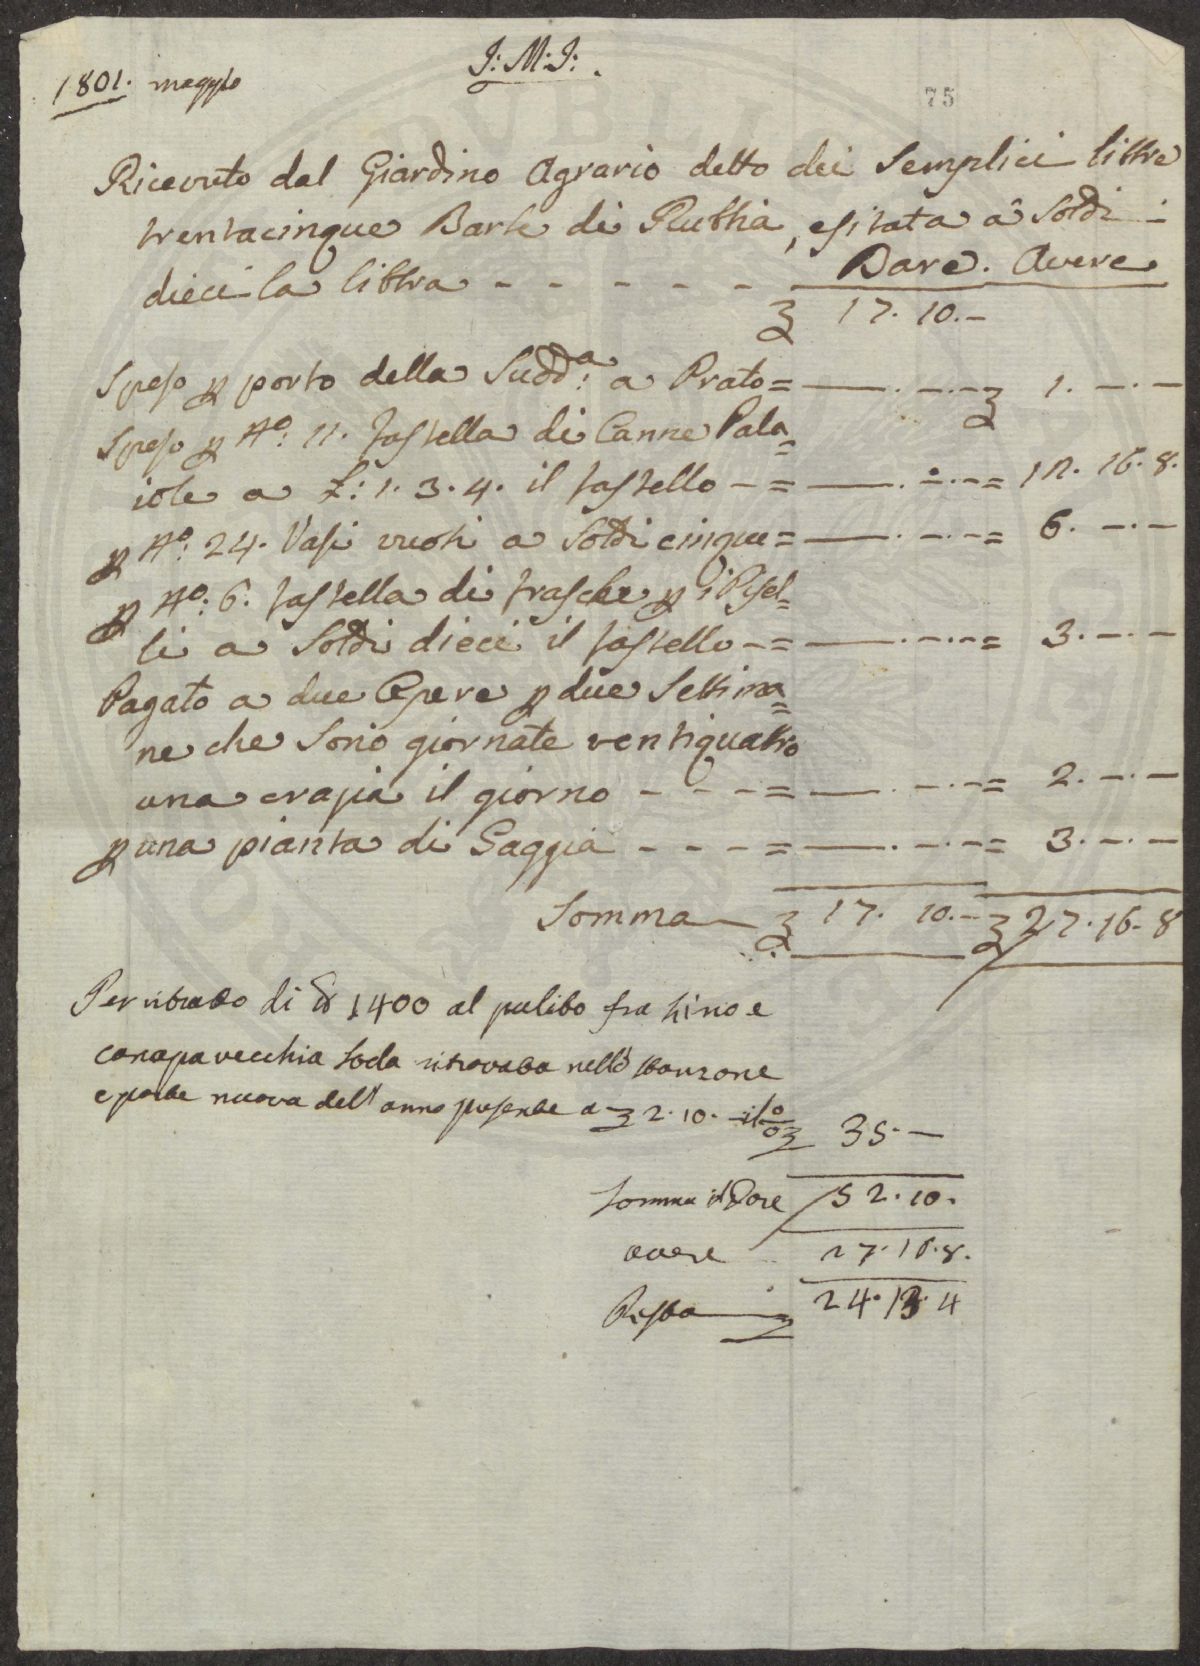 J: M: J:
1801. maggio
75
Ricevuto dal Giardino Agrario detto dei Semplici libbre
trentacinque Barbe di Rubbia, esitata a Soldi
dieci la libbra - - - - - - Dare. Avere
17. 10. -
Speso p porto della Sudd.a: a Prato = —. -. - 1. -. -
Speso p No: 11. fastella di Canne Pala=
iole a £: 1. 3. 4. il fastello - = —. -. - = 12. 16. 8.
p No: 24. Vasi vuoti a Soldi cinque = —. -. - = 6. -. -
p No: 6. fastella di frasche p i Pisel=
li a Soldi dieci il fastello - = —. -. - = 3. -. -
Pagato a due Opere p due Settima=
ne che Sono giornate ventiquatro
una crazia il giorno - - - = —. -. - = 2. -. -
p una pianta di Gaggia - - - = —. -. - = 3. -. -
Somma — 17. 10. - 27. 16. 8
Per ritratto di 1400 al pulito fra Lino e
canapa vecchia soda ritrovata nello stanzone
e parte nuova dell'anno presente a 2. 10. - il 35. -
Somma il Dare 52. 10.
avere 27. 16. 8.
Resta 24. 13. 4